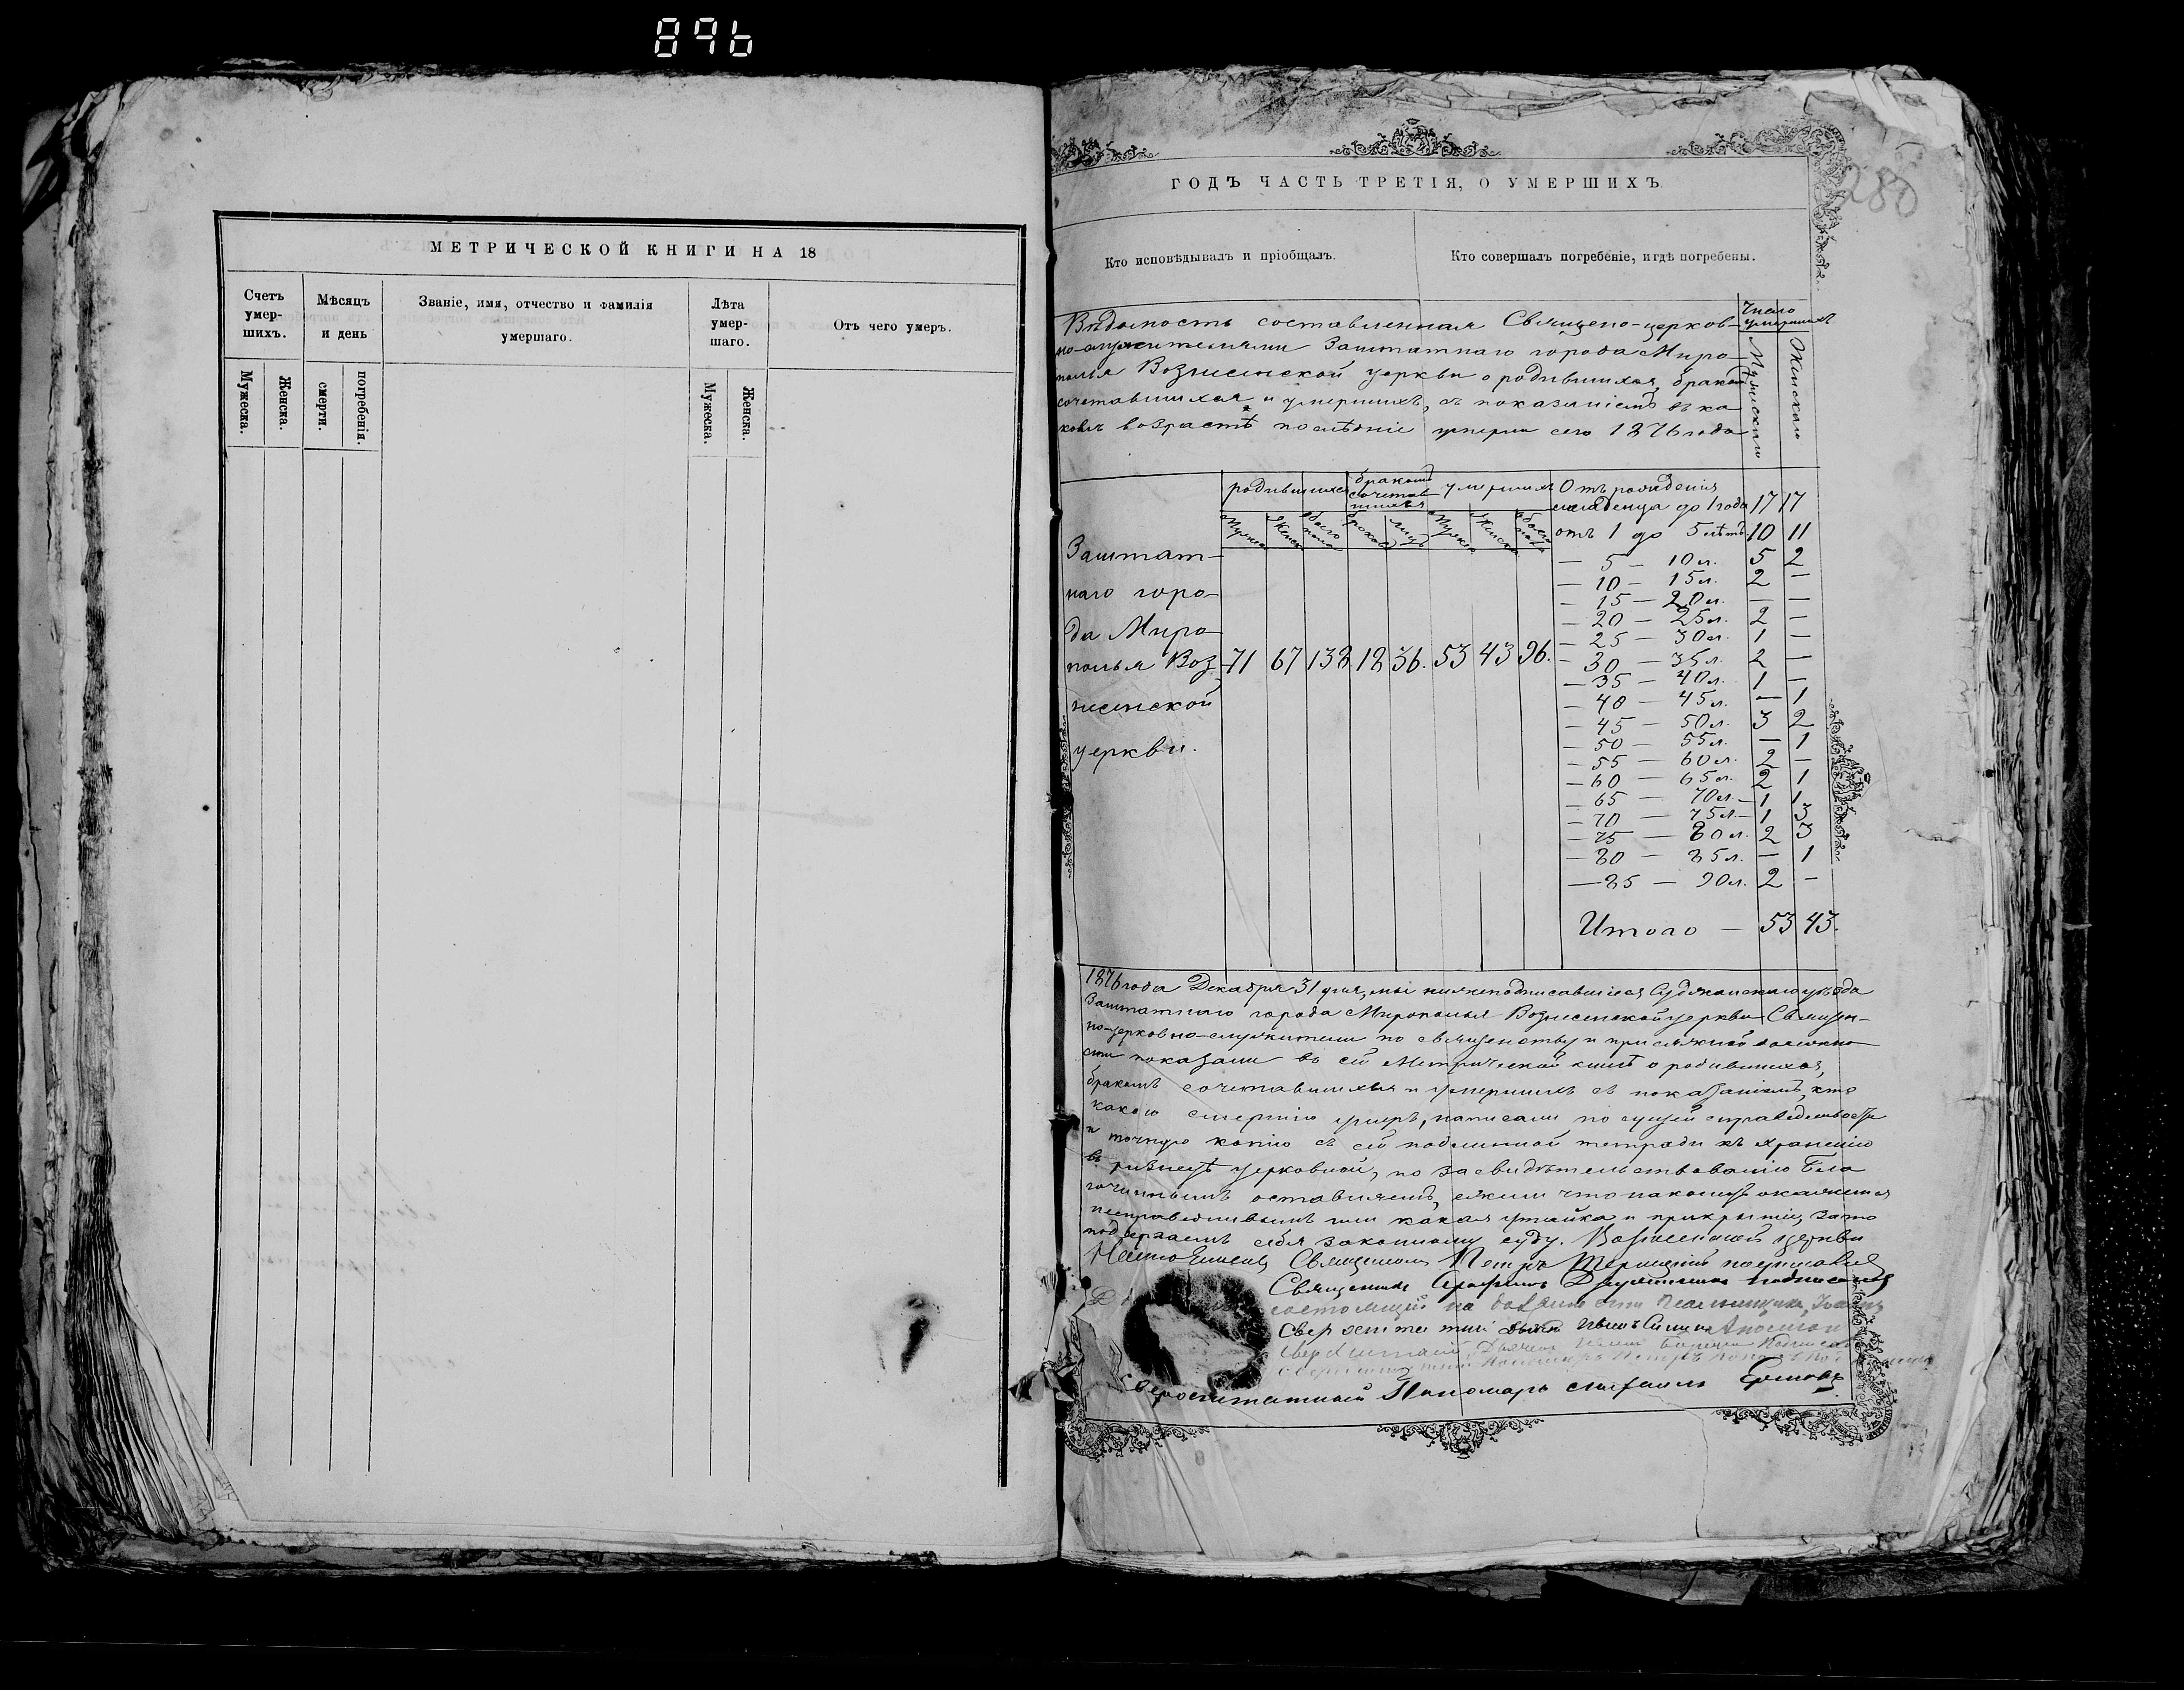 896
МЕТРИЧЕСКОЙ КНИГИ НА 18
Счетъ умер- шихъ.
Мѣсяцъ и день
Званіе, имя, отчество и фамилія умершаго.
Лѣта умер- шаго.
Отъ чего умеръ.
Мужеска.
Женска.
смерти.
погребенія.
Мужеска.
Женска.
280
ГОДЪ ЧАСТЬ ТРЕТІЯ, О УМЕРШИХЪ.
Кто исповѣдывалъ и пріобщалъ.
Кто совершалъ погребеніе, и гдѣ погребены.
Вѣдомость составленная Священо-церков-
но-служителями Заштатнаго города Миро-
полья Вознесенской церкви о родившихся, бракомъ
сочетавшихся и умершихъ, съ показаніемъ въ ка
комъ возрастѣ послѣдніе умерли сего 1876 года
Число умершихъ
Мужскаго
Женскаго
родившихся
бракомъ сочетав шихся
умершихъ
Мужска
Женск
обоего пола
браковъ
лицъ
Мужска
Женска
обоего пола
Заштат-
наго горо-
да Миро-
полья Воз-
несенской
церкви.
71 67 138 18 36. 53 43 96.
Отъ рожденія
младенца до 1 года 17 17
отъ 1 до 5 лѣтъ 10 11
— 5 — 10 л. 5 2
— 10 — 15 л. 2 —
— 15 — 20 л. — —
— 20 — 25 л. 2 —
— 25 — 30 л. 1 —
— 30 — 35 л. 2 —
— 35 — 40 л. 1 —
— 40 — 45 л. — 1
— 45 — 50 л. 3 2
— 50 — 55 л. — 1
— 55 — 60 л. 2 —
— 60 — 65 л. 2 1
— 65 — 70 л. — 1 1
— 70 — 75 л. — 1 3
— 75 — 80 л. 2 3
— 80 — 85 л. — 1
— 85 — 90 л. 2 —
Итого — 53 43.
1876 года Декабря 31 дня, мы нижеподписавшіеся Суджанскаго уѣзда
Заштатнаго города Мирополья Вознесенской церкви Священ-
но-церковно-служители по священству и присяжной должно
сти показали въ сей Метрической книгѣ о родившихся,
бракомъ сочетавшихся и умершихъ съ показаніемъ, кто
какою смертію умеръ, написали по сущей справедливости
и точную копію съ сей подлинной тетради къ храненію
въ ризницѣ церковной, по засвидѣтельствованію Бла
гочиннымъ оставляемъ, ежели что наконецъ окажется
несправедливымъ или какая утайка и прикрытіе, за то
подвергаемъ себя законному суду. Вознесенской церкви
Настоятель Священникъ Петръ подписался
Священникъ подписался
состоящій на должности Псаломщика,
Сверхштатный
Сверхштатный Дьячекъ
Сверхштатный Пономарь Михаилъ